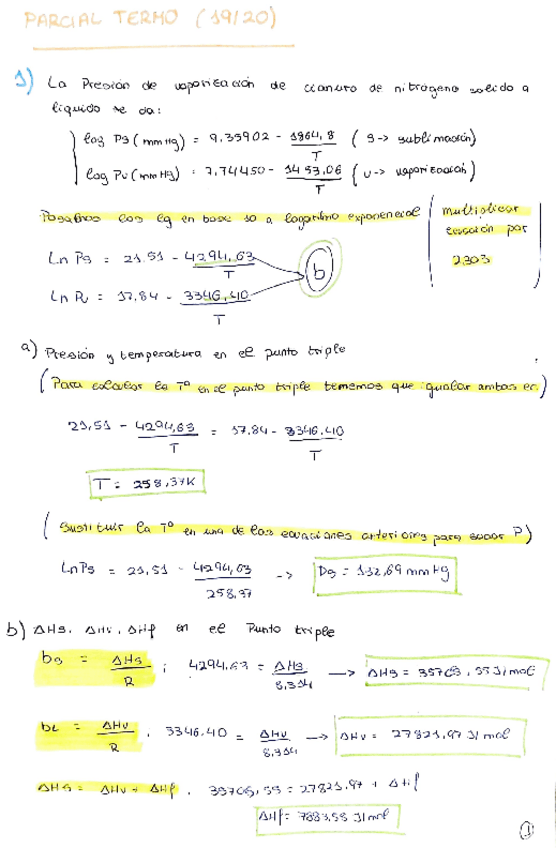 PARCIAL TERMO (19/20)
1) La Presión de vaporización de cianuro de nitrógeno solido a
liquido se da:
log Ps (mmHg) = 9,35902 - 1864,8/T (s -> sublimación)
log Pv (mmHg) = 7,74450 - 1453,06/T (v -> vaporización)
Pasamos los lg en base 10 a logaritmo exponencial (multiplicar ecuación por 2.303
Ln Ps = 21.51 - 4294,63/T
Ln Pv = 17.84 - 3346.40/T
b
a) Presión y temperatura en el punto triple
(Para calcular la Tº en el punto triple tenemos que igualar ambas ec)
21,51 - 4294,63/T = 17.84 - 3346.40/T
T = 258,37K
(Sustituir la Tº en una de las ecuaciones anteriores para sacar P)
Ln Ps = 21,51 - 4294,63/258,37 -> Ps = 132,69 mmHg
b) ΔHs, ΔHv, ΔHf en el Punto triple
bs = ΔHs/R ; 4294,63 = ΔHs/8,314 -> ΔHs = 35705,55 J/mol
bL = ΔHv/R , 3346.40 = ΔHv/8,314 -> ΔHv = 27821,97 J/mol
ΔHs = ΔHv + ΔHf , 35705,55 = 27821,97 + ΔHf
ΔHf = 7883,58 J/mol
1